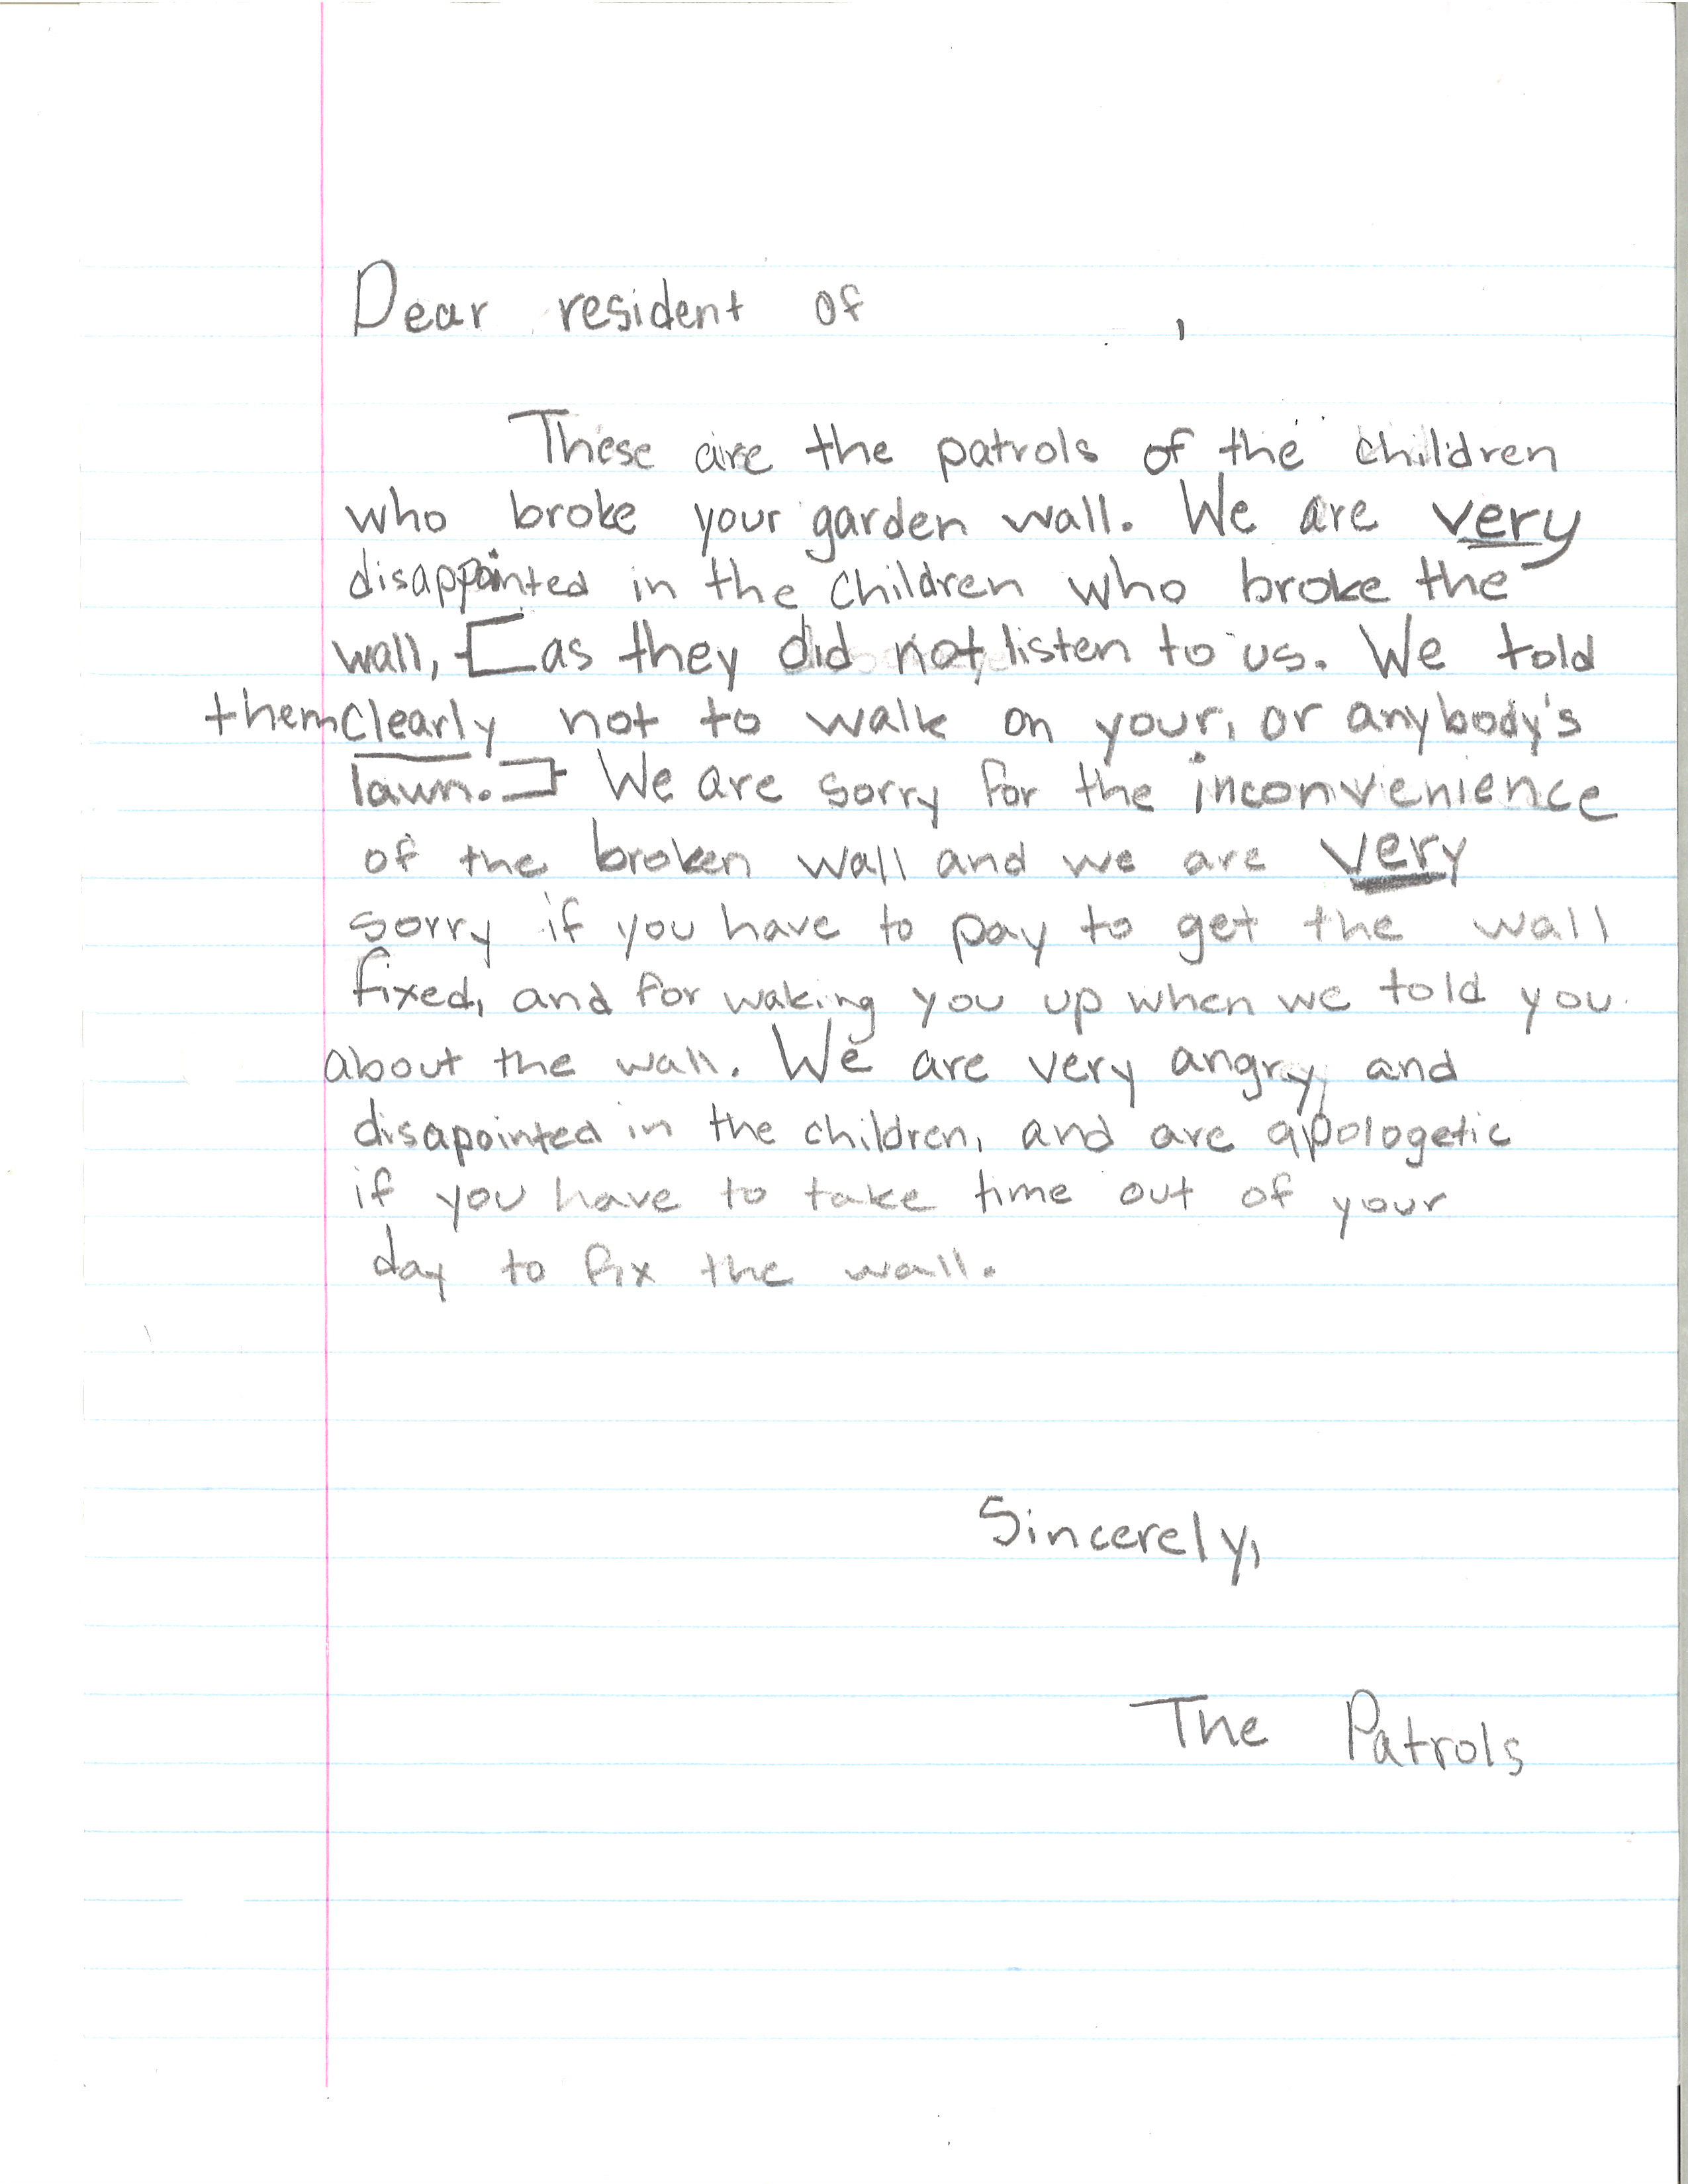 Dear resident of ,
These are the patrols of the children
who broke your garden wall. We are very
disappointed in the children who broke the
wall, [as they did not, listen to us. We told
them clearly not to walk on your, or anybody's
lawn.] We are sorry for the inconvenience
of the broken wall and we are very
sorry if you have to pay to get the wall
fixed, and for waking you up when we told you
about the wall. We are very angry, and
disapointed in the children, and are apologetic
if you have to take time out of your
day to fix the wall.
Sincerely,
The Patrols